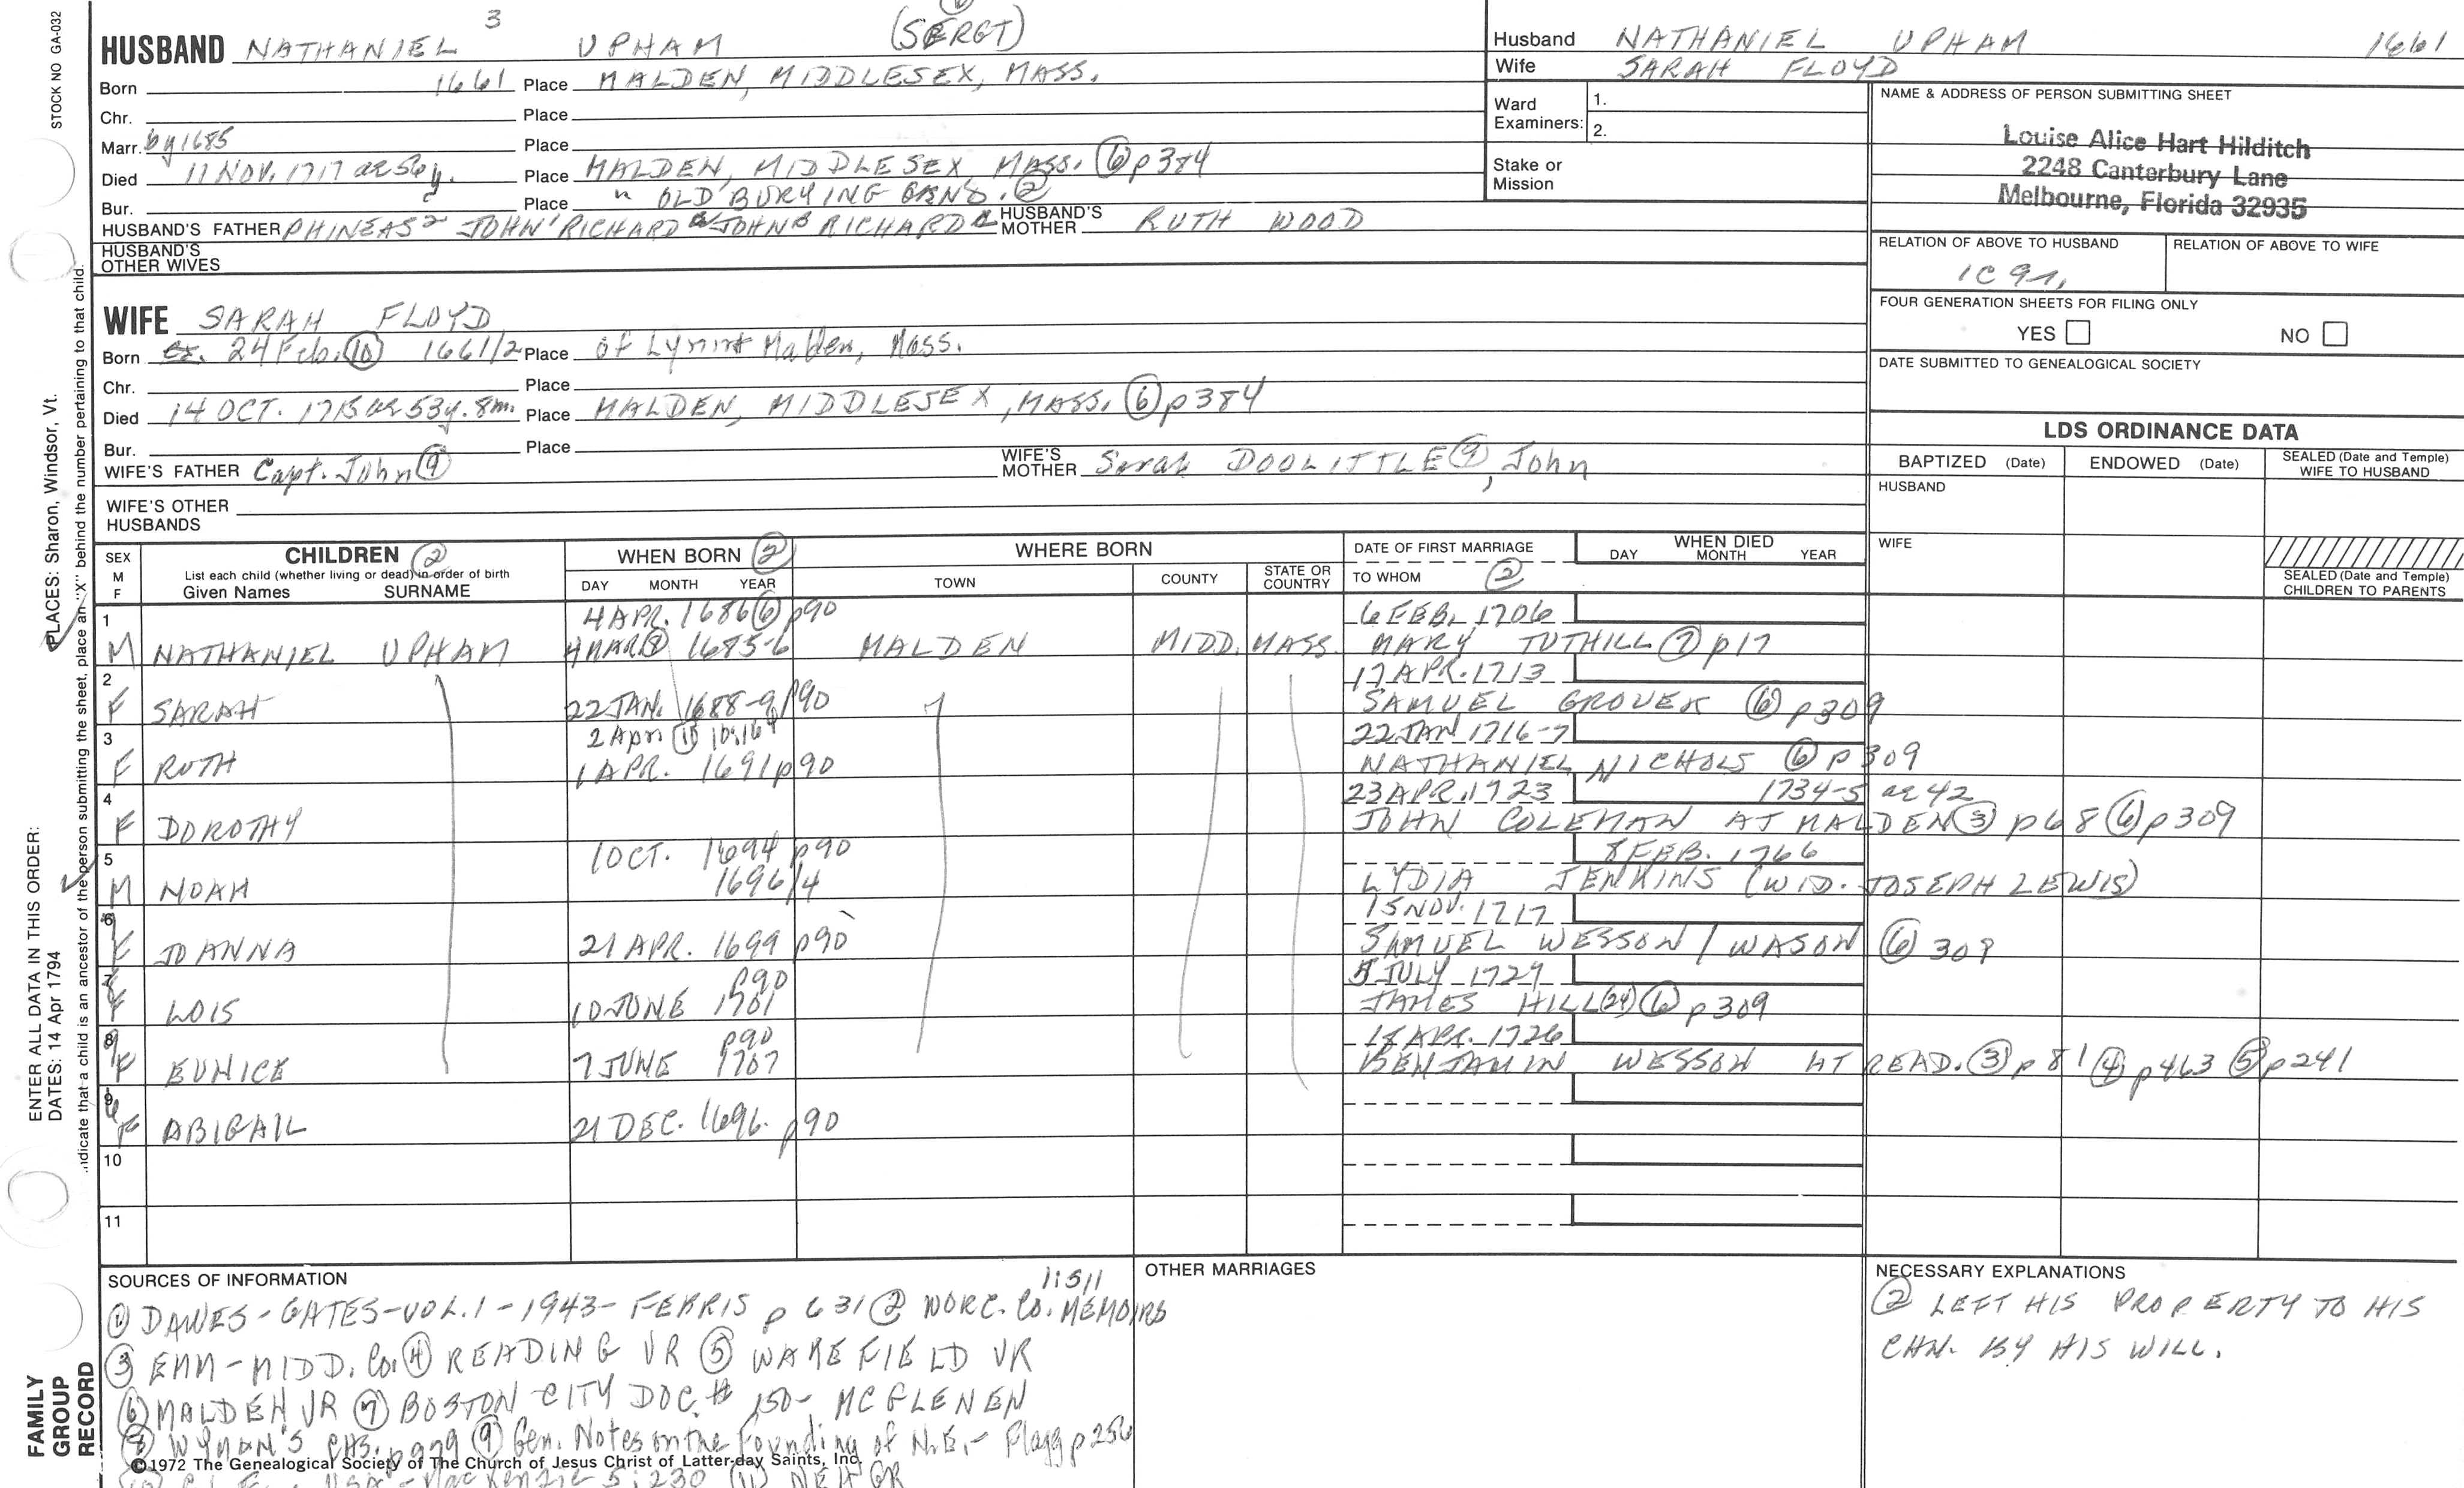 STOCK NO GA-032
3
HUSBAND NATHANIEL UPHAM (SERGT)
Born 1661 Place MALDEN, MIDDLESEX, MASS.
Chr. Place
Marr. by 1685 Place
Died 11 NOV. 1717 ae 56 y. Place MALDEN, MIDDLESEX, MASS. ⑥ p384
Bur. Place " OLD BURYING GRND. ②
HUSBAND'S FATHER PHINEAS 2 JOHN 1 RICHARD JOHN B RICHARD HUSBAND'S MOTHER RUTH WOOD
HUSBAND'S OTHER WIVES
WIFE SARAH FLOYD
Born 24 Feb. ⑩ 1661/2 Place of Lynn Malden, Mass.
Chr. Place
Died 14 OCT. 1715 ae 53y. 8m. Place MALDEN, MIDDLESEX, MASS. ⑥ p384
Bur. Place
WIFE'S FATHER Capt. John ⑨ WIFE'S MOTHER Sarah DOOLITTLE ⑨, John
WIFE'S OTHER HUSBANDS
Husband NATHANIEL UPHAM 1661
Wife SARAH FLOYD
Ward Examiners: 1.
2.
Stake or Mission
NAME & ADDRESS OF PERSON SUBMITTING SHEET
Louise Alice Hart Hilditch
2248 Canterbury Lane
Melbourne, Florida 32935
RELATION OF ABOVE TO HUSBAND RELATION OF ABOVE TO WIFE
1C 9r,
FOUR GENERATION SHEETS FOR FILING ONLY
YES NO
DATE SUBMITTED TO GENEALOGICAL SOCIETY
LDS ORDINANCE DATA
BAPTIZED (Date) ENDOWED (Date) SEALED (Date and Temple) WIFE TO HUSBAND
HUSBAND
WIFE
SEALED (Date and Temple) CHILDREN TO PARENTS
SEX M F CHILDREN ② WHEN BORN ② WHERE BORN DATE OF FIRST MARRIAGE WHEN DIED
List each child (whether living or dead) in order of birth
Given Names SURNAME DAY MONTH YEAR TOWN COUNTY STATE OR COUNTRY TO WHOM ② DAY MONTH YEAR
1 4 APR. 1686 ⑥ p90 6 FEB. 1706
M NATHANIEL UPHAM 4 MAR ⑧ 1685-6 MALDEN MIDD. MASS. MARY TUTHILL ⑦ p17
2 17 APR. 1713
F SARAH 22 JAN. 1688-9 p90 SAMUEL GROVER ⑥ p309
3 2 Apr 22 JAN 1716-7
F RUTH 1 APR. 1691 p90 NATHANIEL NICHOLS ⑥ p309
4 23 APR. 1723 1734-5 ae 42
F DOROTHY JOHN COLEMAN AT MALDEN ③ p68 ⑥ p309
5 1 OCT. 1694 p90 8 FEB. 1766
M NOAH 1696/4 LYDIA JENKINS (WID. JOSEPH LEWIS)
6 15 NOV. 1717
F JOANNA 21 APR. 1699 p90 SAMUEL WESSON / WASON ⑥ 309
7 p90 5 JULY 1729
F LOIS 10 JUNE 1701 JAMES HILL (24) ⑥ p309
8 p90 18 APR. 1726
F EUNICE 7 JUNE 1707 BENJAMIN WESSON AT READ. ③ p81 ④ p463 ⑤ p241
9
6 F ABIGAIL 21 DEC. 1696. p90
10
11
SOURCES OF INFORMATION 11511
① DAWES-GATES-VOL.1-1943-FERRIS p 631 ② WORC. CO. MEMOIRS
③ EMM-MIDD. Co. ④ READING VR ⑤ WAKEFIELD VR
⑥ MALDEN VR ⑦ BOSTON CITY DOC. # 150- MCGLENEN
⑧ WYMAN'S CHS. p979 ⑨ Gen. Notes on the Founding of N.E.- Flagg p256
©1972 The Genealogical Society of The Church of Jesus Christ of Latter-day Saints, Inc.
USA - MacKenzie 5:230 ⑪ NEHGR
OTHER MARRIAGES
NECESSARY EXPLANATIONS
② LEFT HIS PROPERTY TO HIS
CHN. BY HIS WILL.
ENTER ALL DATA IN THIS ORDER:
DATES: 14 Apr 1794
PLACES: Sharon, Windsor, Vt.
indicate that a child is an ancestor of the person submitting the sheet, place an "X" behind the number pertaining to that child.
FAMILY
GROUP
RECORD